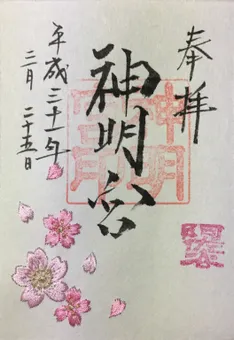 奉拝
神明宮
平成三十一年
三月二十五日